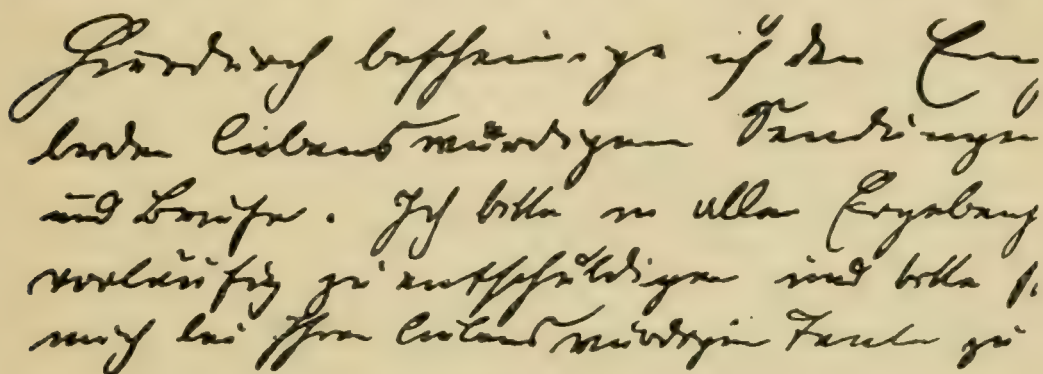 Hierdurch bescheinige ich den Em
beiden liebenswürdigen Sendungen
und Briefe. Ich bitte in aller Ergeben
vorläufig zu entschuldigen und bitte
mich bei Ihrer liebenswürdigen Tante zu